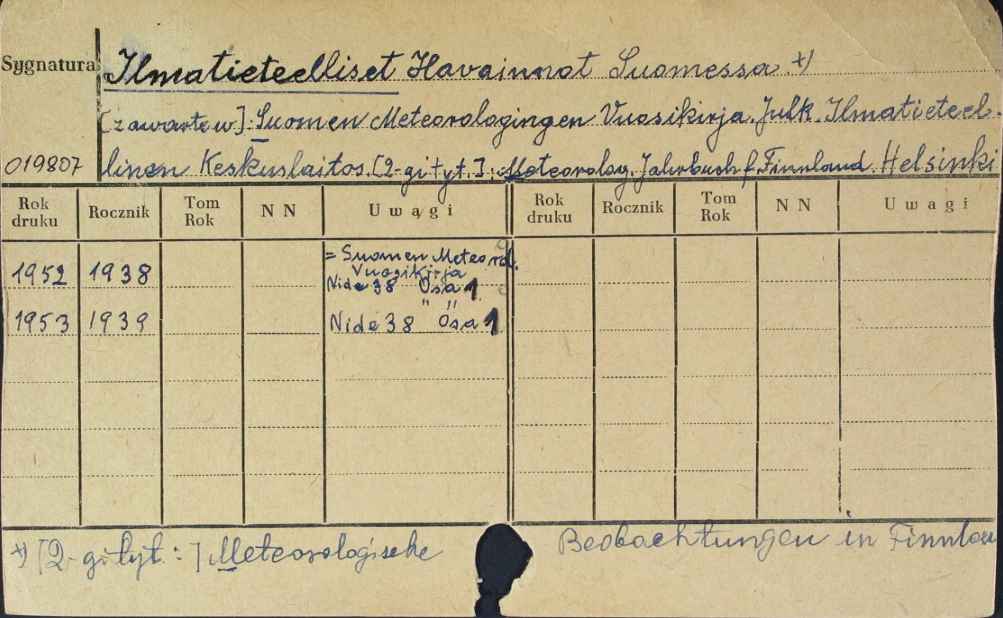 Sygnatura Ilmatieteelliset Havainnot Suomessa *)
[zawarte w]: Suomen Meteorologingen Vuosikirja. Julk. Ilmatieteel-
019807 linen Keskuslaitos. [2-gi tyt.]: Meteorolog. Jahrbuch f. Finnland. Helsinki
Rok druku Rocznik Tom Rok N N Uwagi Rok druku Rocznik Tom Rok N N Uwagi
= Suomen Meteorol.
Vuosikirja
1952 1938 Nide 38 Osa 1
" "
1953 1939 Nide 38 Osa 1
*) [2-gi tyt.:] Meteorologische Beobachtungen in Finnlan